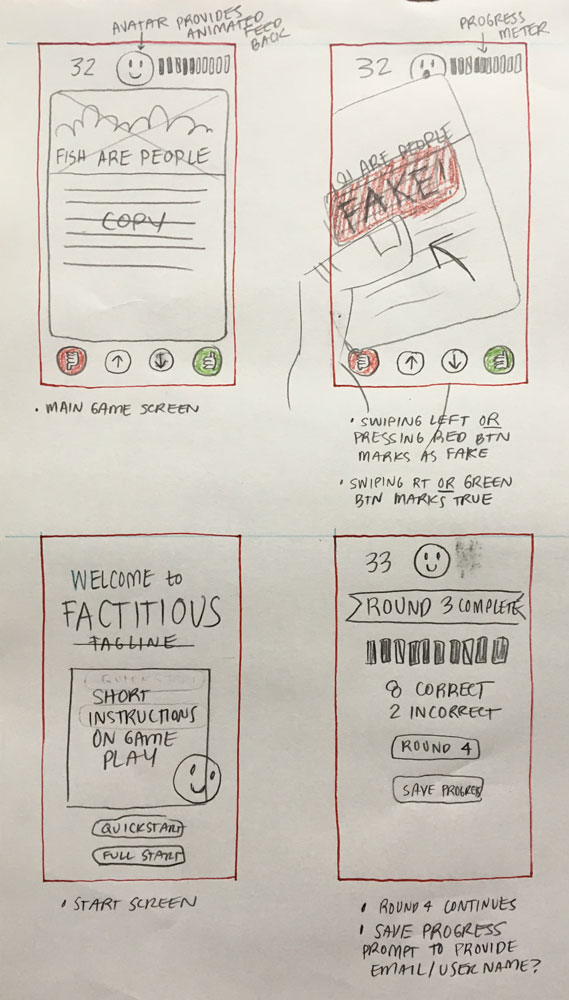 AVATAR PROVIDES
ANIMATED
FEED
BACK
32
FISH ARE PEOPLE
COPY
• MAIN GAME SCREEN
PROGRESS
METER
32
ARE PEOPLE
FAKE!
• SWIPING LEFT OR
PRESSING RED BTN
MARKS AS FAKE
• SWIPING RT OR GREEN
BTN MARKS TRUE
WELCOME to
FACTITIOUS
TAGLINE
QUICKSTART
SHORT
INSTRUCTIONS
ON GAME
PLAY
QUICKSTART
FULL START
• START SCREEN
33
ROUND 3 COMPLETE
8 CORRECT
2 INCORRECT
ROUND 4
SAVE PROGRESS
• ROUND 4 CONTINUES
• SAVE PROGRESS
PROMPT TO PROVIDE
EMAIL/USER NAME?